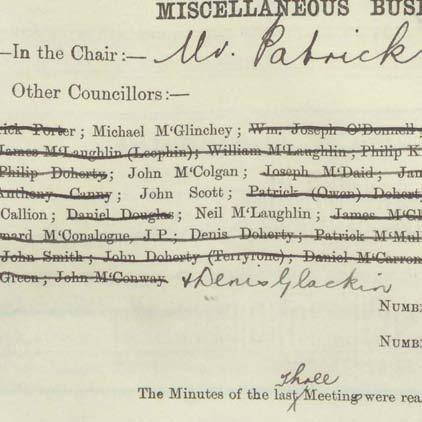 MISCELLANEOUS BUSI
—In the Chair:— Mr. Patrick
Other Councillors:—
rick Porter; Michael M'Glinchey; Wm. Joseph O'Donnell;
James M'Laughlin (Leophin); William M'Laughlin; Philip K
Philip Doherty; John M'Colgan; Joseph M'Daid; Jam
Anthony Canny; John Scott; Patrick (Owen) Doherty
Callion; Daniel Douglas; Neil M'Laughlin; James M'Gl
nard M'Conalogue, J.P.; Denis Doherty; Patrick M'Mul
John Smith; John Doherty (Terryrone); Daniel M'Carron
Green; John M'Conway. + Denis Glackin
NUMBE
NUMBE
three
The Minutes of the last Meetings were rea